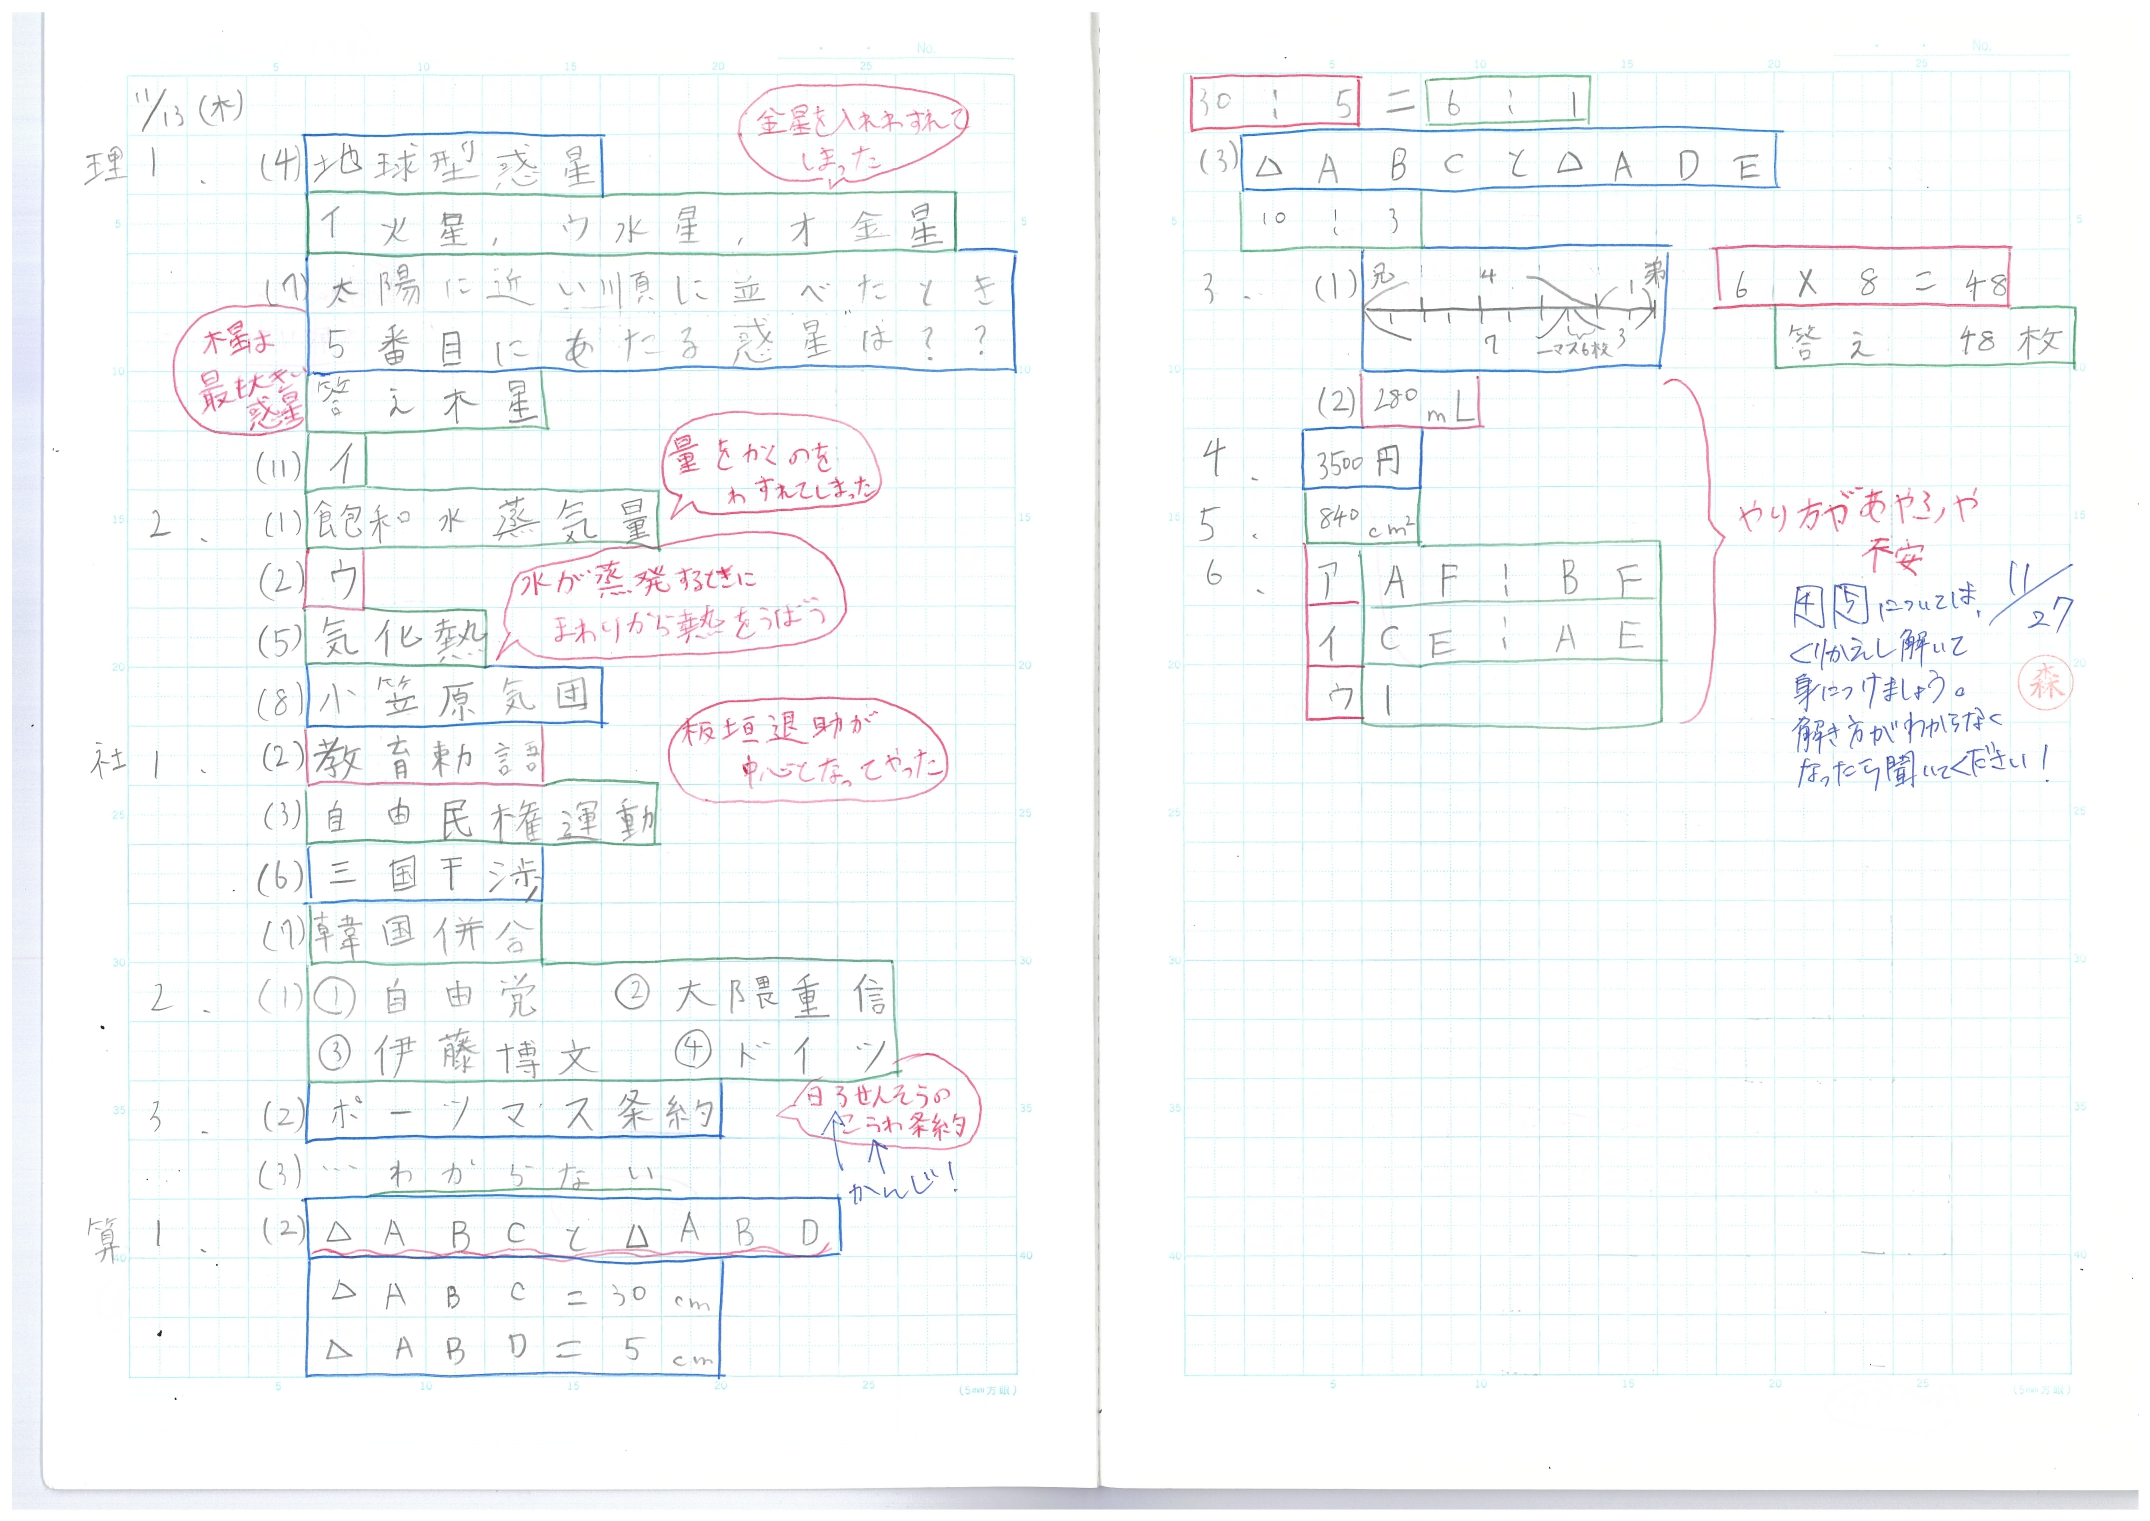 11/13(木)
理1. (4)地球型惑星
金星を入れわすれて
しまった
イ火星, ウ水星, オ金星
(7)太陽に近い順に並べたとき
5番目にあたる惑星は??
木星は
最も大きい
惑星
答え木星
(11)イ
2. (1)飽和水蒸気量
量をかくのを
わすれてしまった
(2)ウ
(5)気化熱
水が蒸発するときに
まわりから熱をうばう
(8)小笠原気団
社1. (2)教育勅語
(3)自由民権運動
板垣退助が
中心となってやった
(6)三国干渉
(7)韓国併合
2. (1)①自由党 ②大隈重信
③伊藤博文 ④ドイツ
3. (2)ポーツマス条約
日ろせんそうの
こうわ条約
かんじ!
(3)…わからない
算1. (2)△ABCと△ABD
△ABC=30cm
△ABD=5cm
(5mm方眼)
No.
30:5=6:1
(3)△ABCと△ADE
10:3
3. (1)兄 4 1 弟
7 一マス6枚 3
6×8=48
答え 48枚
(2)280mL
4. 3500円
5. 840cm²
6. ア AF:BF
イ CE:AE
ウ 1
やり方があやふや
不安
4 5 については、
くりかえし解いて
身につけましょう。
解き方がわからなく
なったら聞いてください!
11/27
森
(5mm方眼)
No.